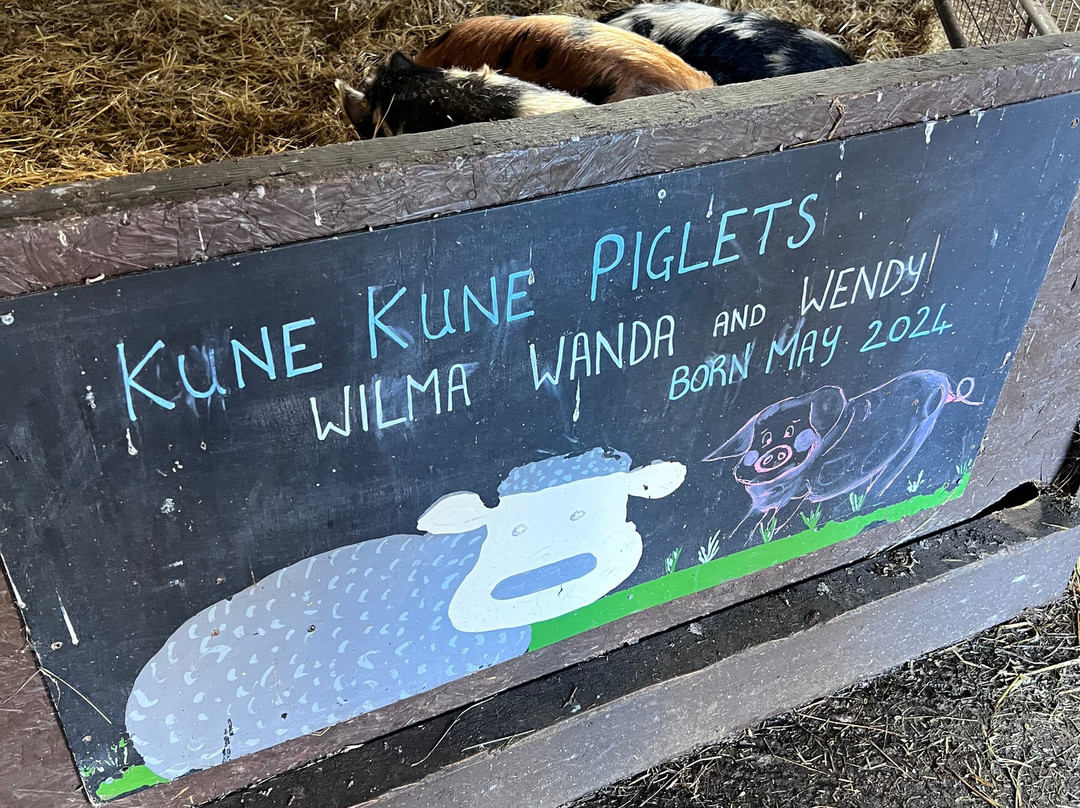 KUNE KUNE PIGLETS
WILMA WANDA AND WENDY
BORN MAY 2024.